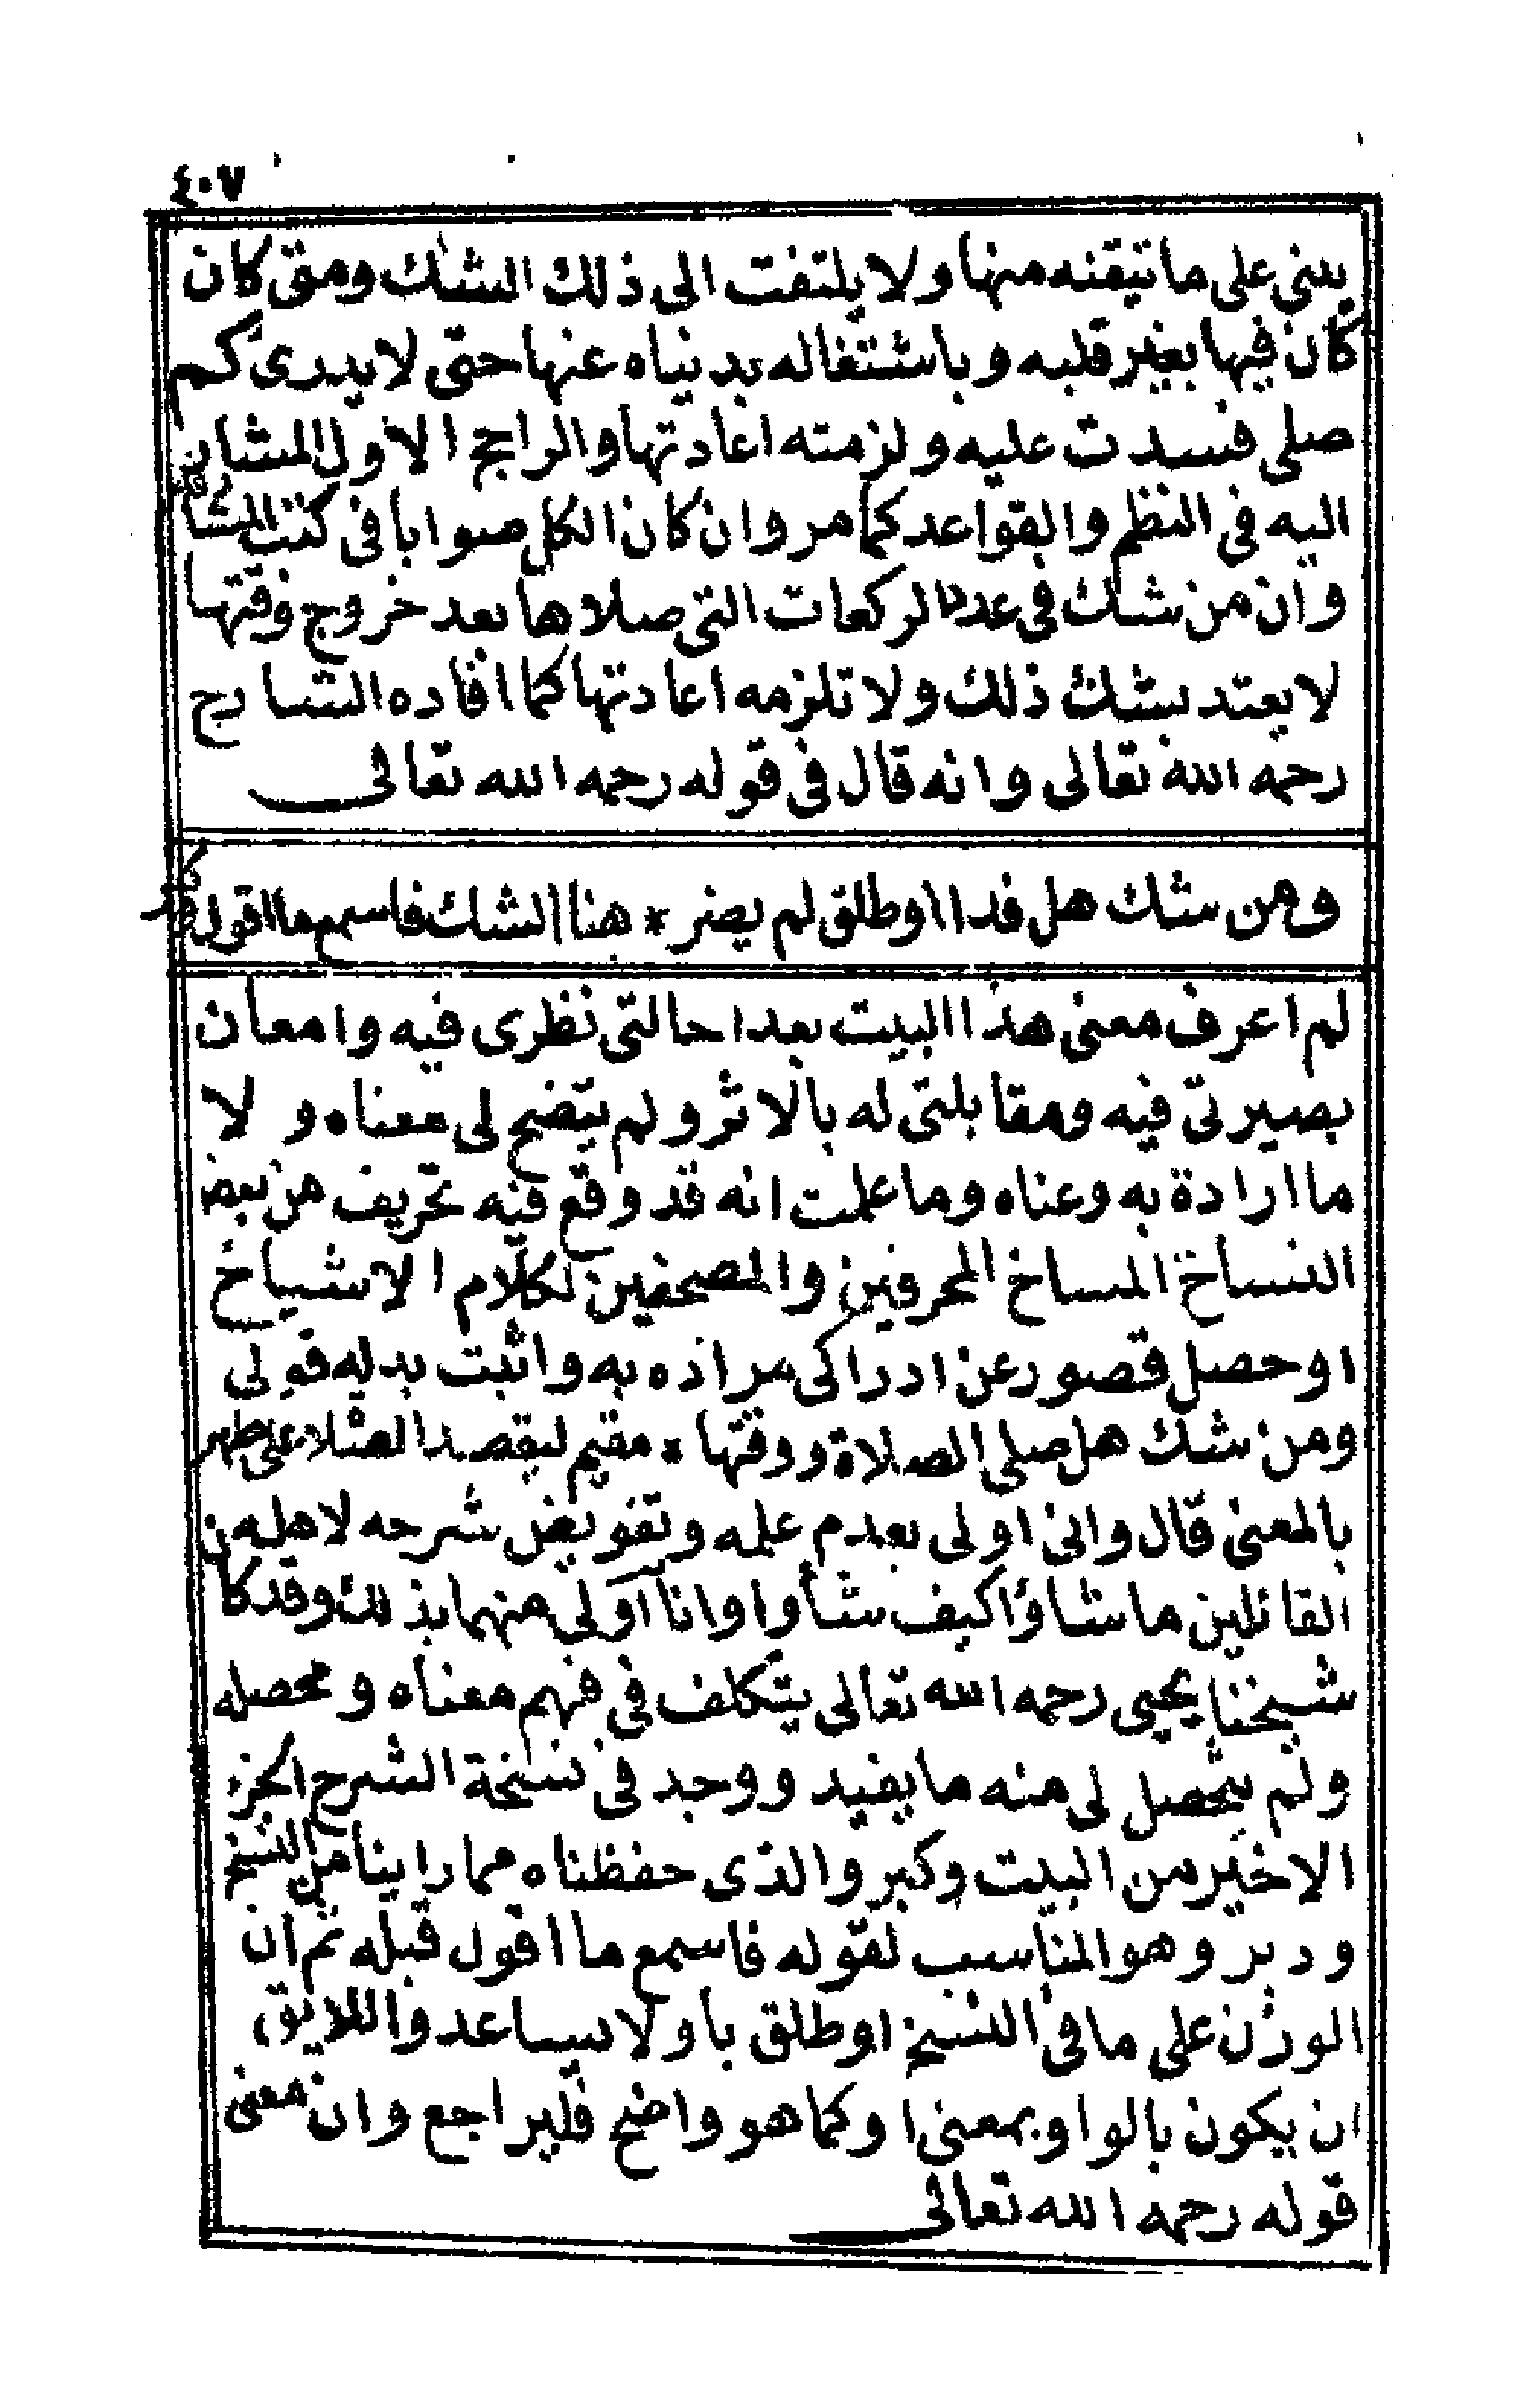 ٤٠٧
يبني على ما تيقنه منها ولا يلتفت الى ذلك الشك ومتى كان
كان فيها بغير قلبه وباشتغاله بدنياه عنها حتى لا يدرى كم
صلى فسدت عليه ولزمته اعادتها والراجح الاول المشار
اليه في النظم والقواعد كما مر وان كان الكل صوابا في كتب المشارقة
وان من شك في عدد الركعات التي صلاها بعد خروج وقتها
لا يعتد بشك ذلك ولا تلزمه اعادتها كما افاده الشارح
رحمه الله تعالى وانه قال في قوله رحمه الله تعالى
ومن شك هل فدا اوطلق لم يضر * هنا الشك فاسمع ما اقول
لم اعرف معنى هذا البيت بعد احالتي نظرى فيه وامعان
بصيرتي فيه ومقابلتي له بالاثر ولم يتضح لي معناه ولا
ما ارادة به وعناه وما علمت انه قد وقع فيه تحريف من بعض
النساخ المساخ المحرفين والمصحفين لكلام الاشياخ
او حصل قصور عن ادراكي مراده به واثبت بدله قولي
ومن شك هل صلى الصلاة ووقتها * مقيم ليقصد الصلا على طهر
بالمعنى قال واني اولى بعدم علمه وتفويض شرحه لاهله من
القائلين ما شاؤا كيف شأوا وانا آولى منهما بذلك وقد كان
شيخنا يحيى رحمه الله تعالى يتكلف في فهم معناه ومحصله
ولم يتحصل لي منه ما يفيد ووجد في نسخة الشرح الجزء
الاخير من البيت وكبر والذى حفظناه مما راينا من النسخ
ودبر وهو المناسب لقوله فاسمع ما اقول قبله ثم ان
الوزن على ما في النسخ اوطلق باو لا يساعد واللايق
ان يكون بالواو بمعنى او كما هو واضح فليراجع وان معنى
قوله رحمه الله تعالى